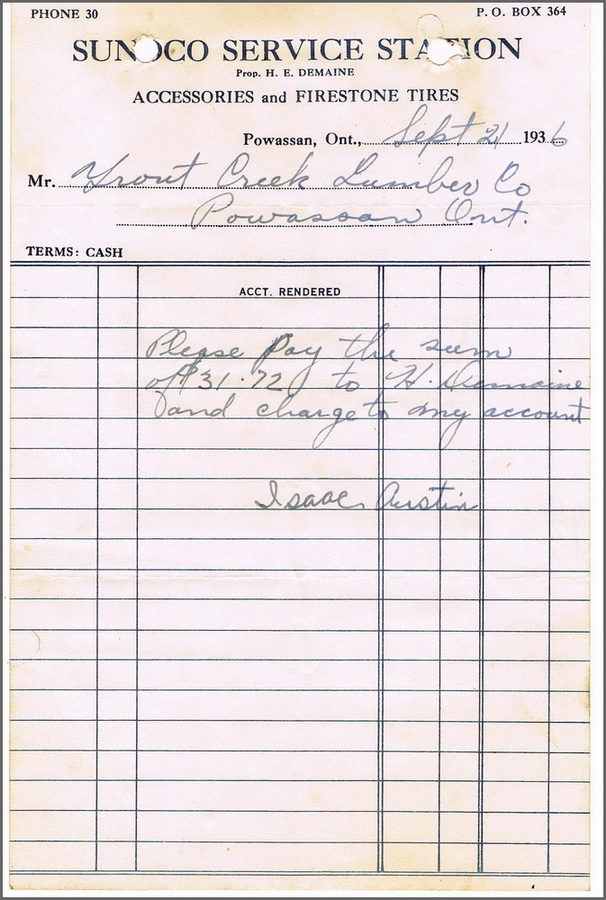 PHONE 30 P. O. BOX 364
SUNOCO SERVICE STATION
Prop. H. E. DEMAINE
ACCESSORIES and FIRESTONE TIRES
Powassan, Ont., Sept 21 1936
Mr. Trout Creek Lumber Co
Powassan Ont.
TERMS: CASH
ACCT. RENDERED
Please Pay the sum
of $31.72 to H. Demaine
and charge to my account
Isaac Austin